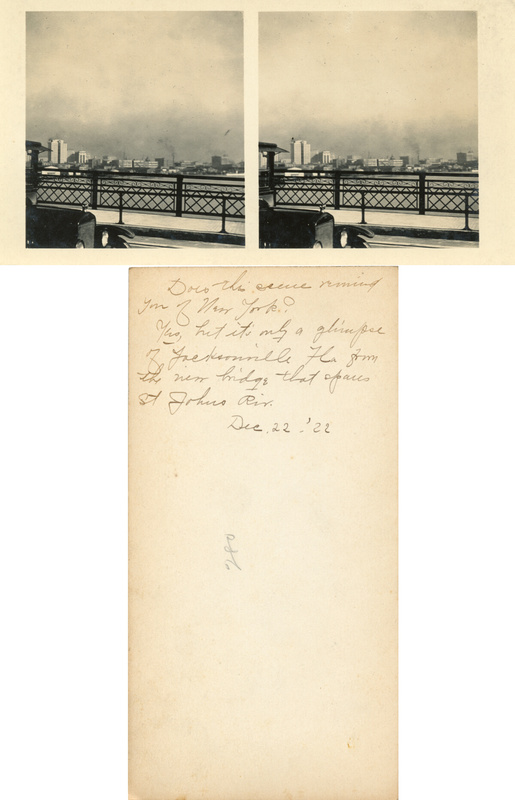 Does this scene remind
you of New York?
Yes, but it's only a glimpse
of Jacksonville Fla from
the new bridge that spans
St Johns Riv.
Dec. 22. '22